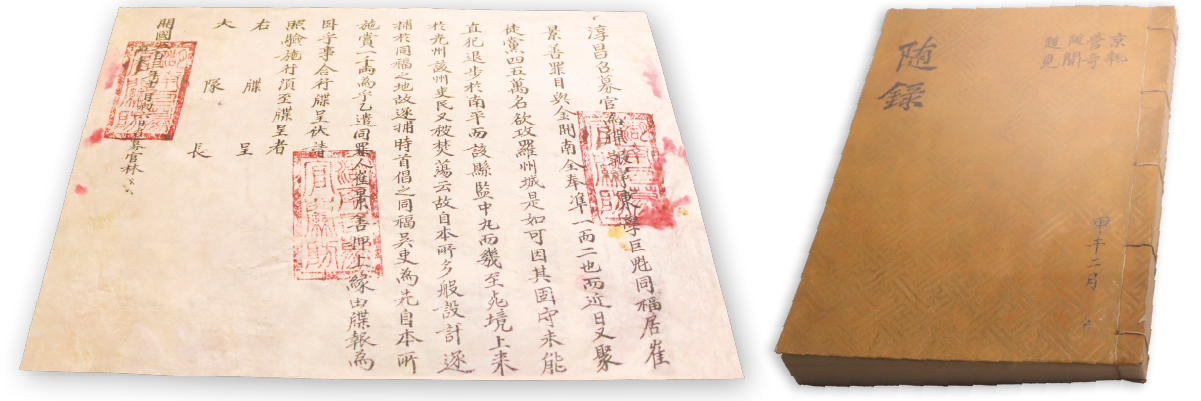 淳昌召募官爲牒報事東學巨魁同福居崔
景善罪目與全開南全奉準一而二也而近日又聚
徒黨四五萬名欲攻羅州城是如可因其固守未能
直犯退步於南平而該縣監中丸而幾至死境上来
於光州該州吏民又被焚蕩云故自本所多般設計逐
捕於同福之地故逐捕時首倡之同福吳吏為先自本所
施賞一千兩為乎乙遣同罪人崔景善押上緣由牒報為
臥乎事合行牒呈伏請
照驗施行湏至牒呈者
右牒呈
大隊長
開國
召募官林
随錄
京耗
營奇
随聞
随見
甲午二月